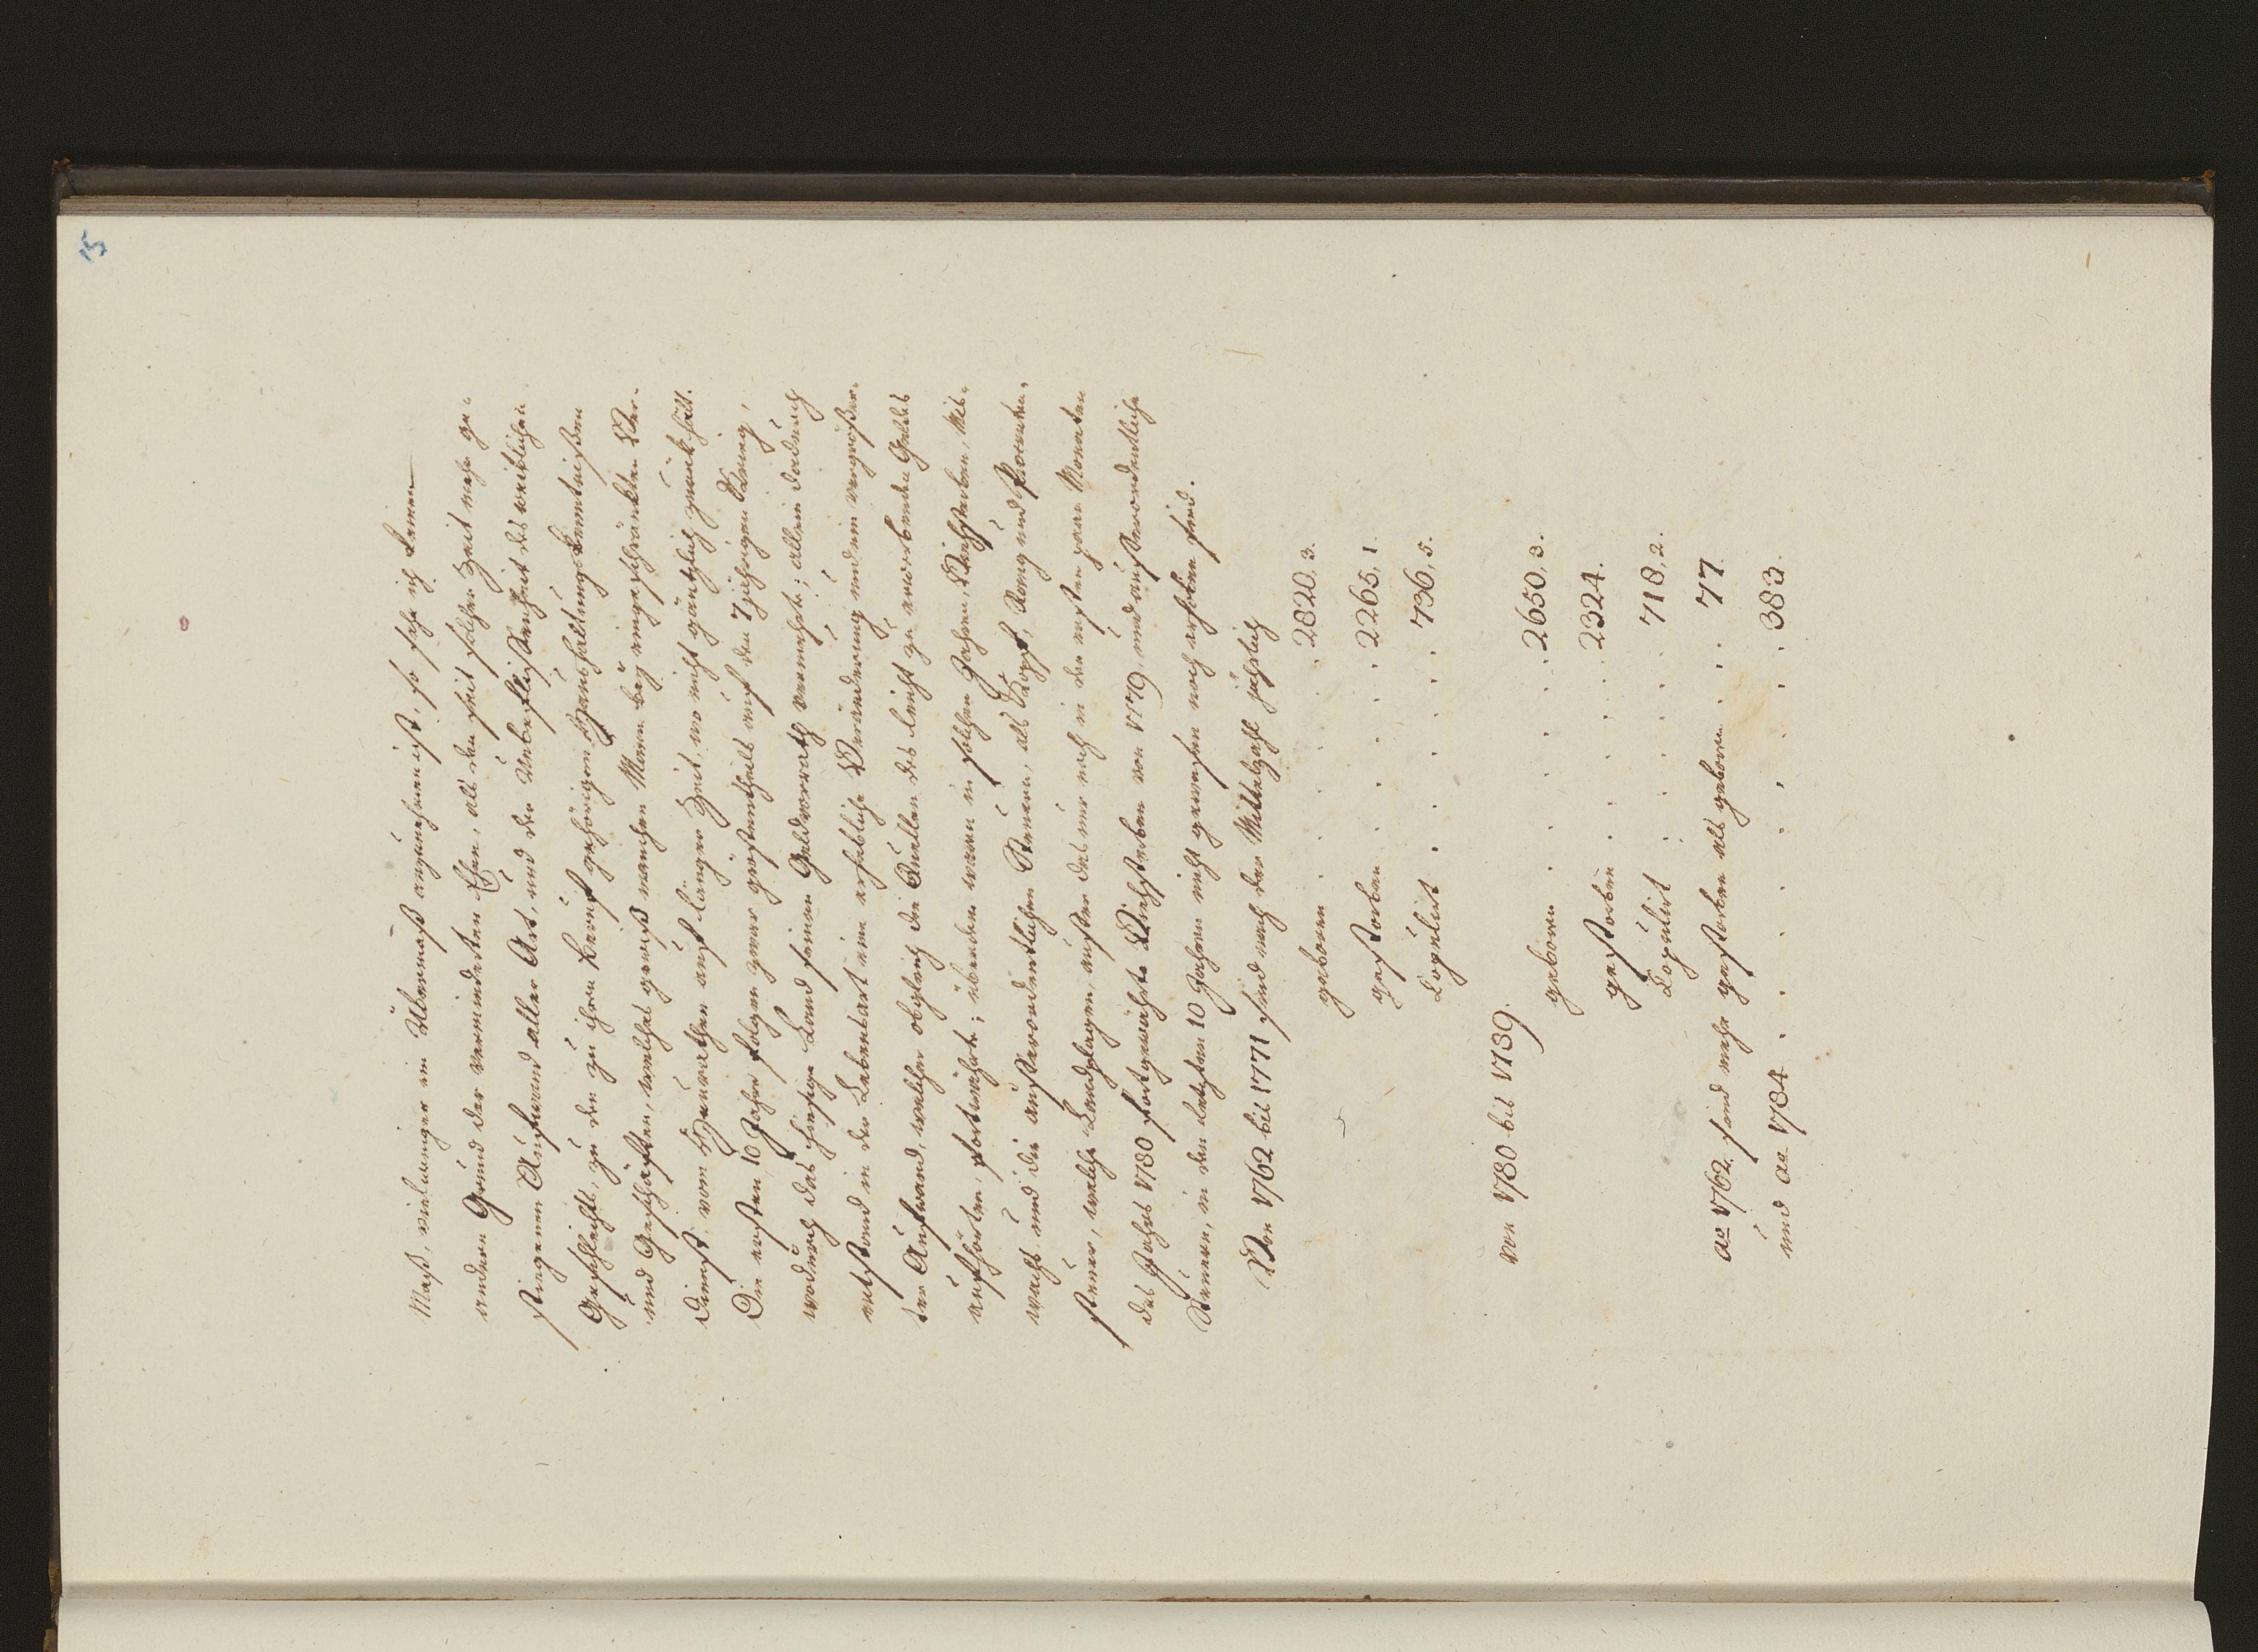 15
Maß, vielweniger ein Übermaß anzunehmen ist, so sehe ich keinen
andern Grund der verminderten Ehen, als den seit solcher Zeit mehr ge-
stiegenen Aufwand aller Art, und der Unbeflissenheit des weiblichen
Geschlechts, zu den zu ihrem Beruf gehörigen Haushaltungskenntnißen
und Geschäften, welches gewiß manchen Mann bey eingeschränkten Ver-
dienst vom Heurathen auf länger Zeit, wo nicht gänzlich zurük hält.
Die ersten 10 Jahre folgen zwar grostentheils auf den 7jährigen Krieg,
wodurch das hiesige Land seinen Geldvorrath vermehrte; allein dadurch
entstand in der Lebensart eine erhebliche Veränderung und ein vergrößer-
ter Aufwand, welcher obgleich die Quellen des leicht zu erwerbenden Geldes
aufhörten, fortwährte; überdem waren in solchen Jahren, Viehsterben, Mis-
wachs und die außerordentlichen Steuern, als Kopf, Rang und
steuer, welche Landplagen, außer das nur noch in den ersten paar Monaten
des Jahrs 1780 fortgewährte Viehsterben von 1779, und außerordentliche
Steuern, in den letzten 10 Jahren nicht gewesen noch erhoben sind.
Von 1762 bis 1771 sind nach der Mittelzahl jährlich
geboren . . . . . . 2820, 3.
gestorben . . . . . . 2265, 1.
Copulirt . . . . . . 736, 5.
von 1780 bis 1789.
geboren . . . . . . 2650, 3.
gestorben . . . . . . 2324.
Copulirt . . . . . . 718, 2.
ao 1762. sind mehr gestorben als geboren . . . 77.
und ao 1784 . . . . . . . . 383.